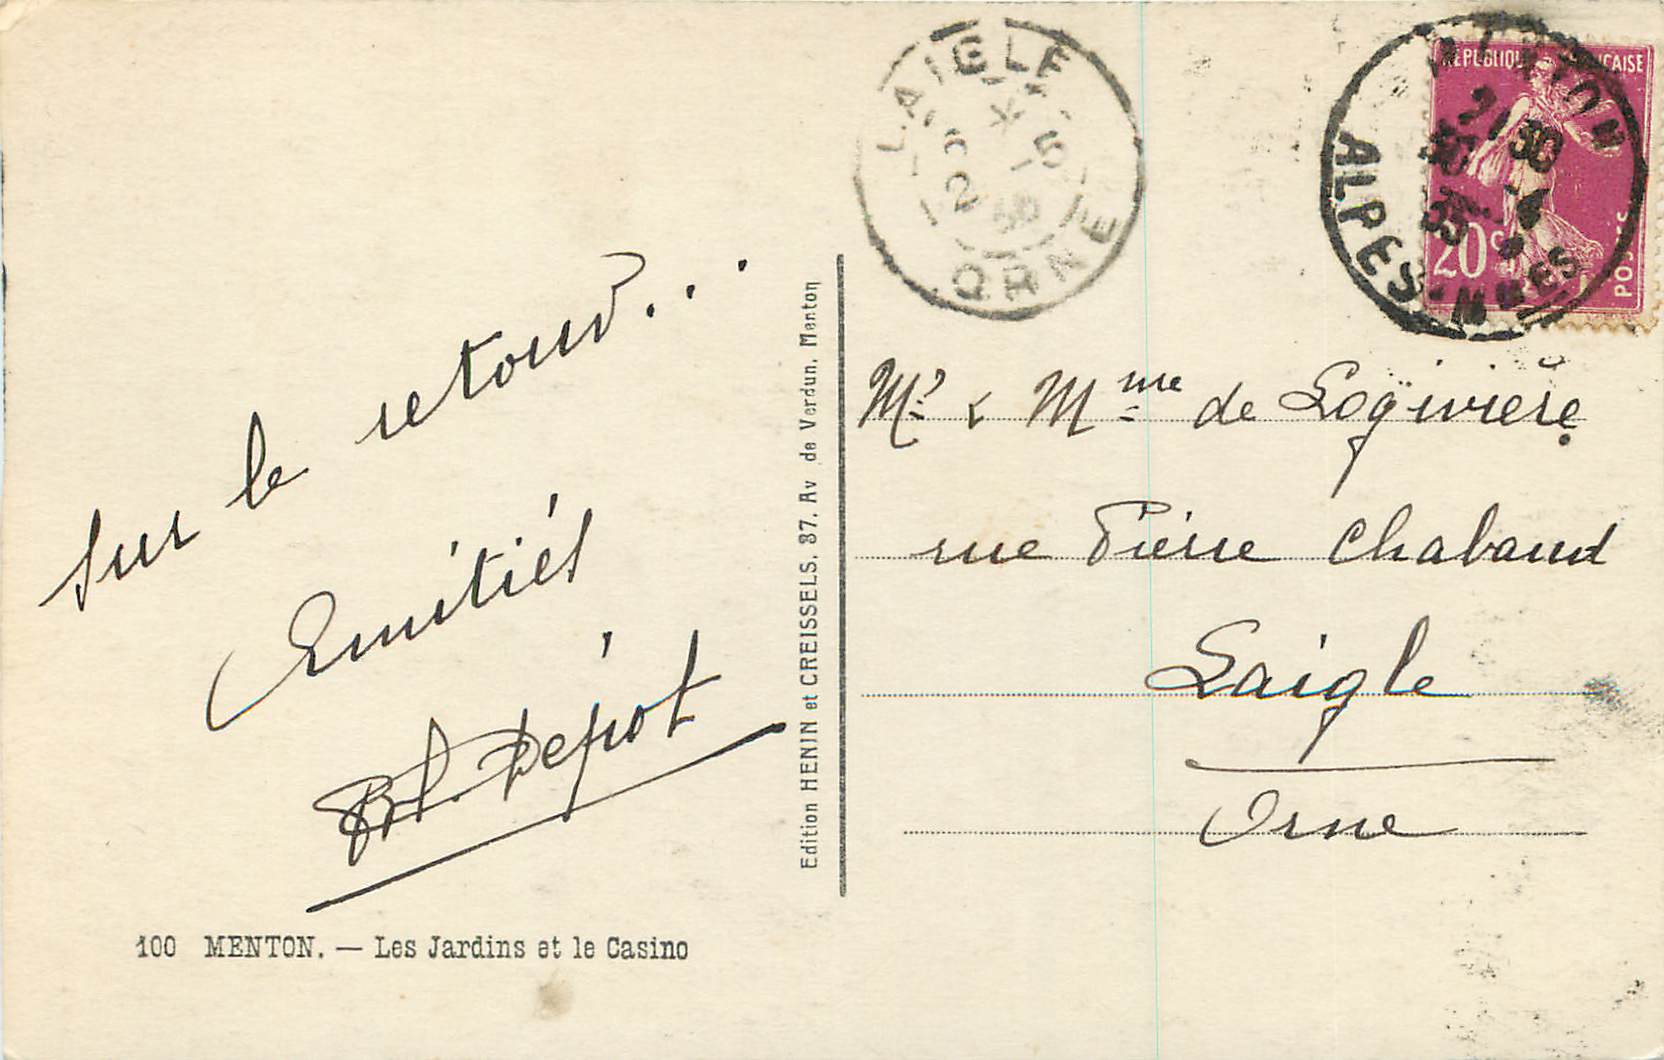 sur le retour..
Amitiés
Dépot
100 MENTON. — Les Jardins et le Casino
Edition HENIN et CREISSELS. 87. Av de Verdun. Menton
LAIGLE
ORNE
MENTON
ALPES-MMES
RÉPUBLIQUE FRANÇAISE
20c
POSTES
Mr & Mme de Logivière
rue Pierre Chabaud
Laigle
Orne